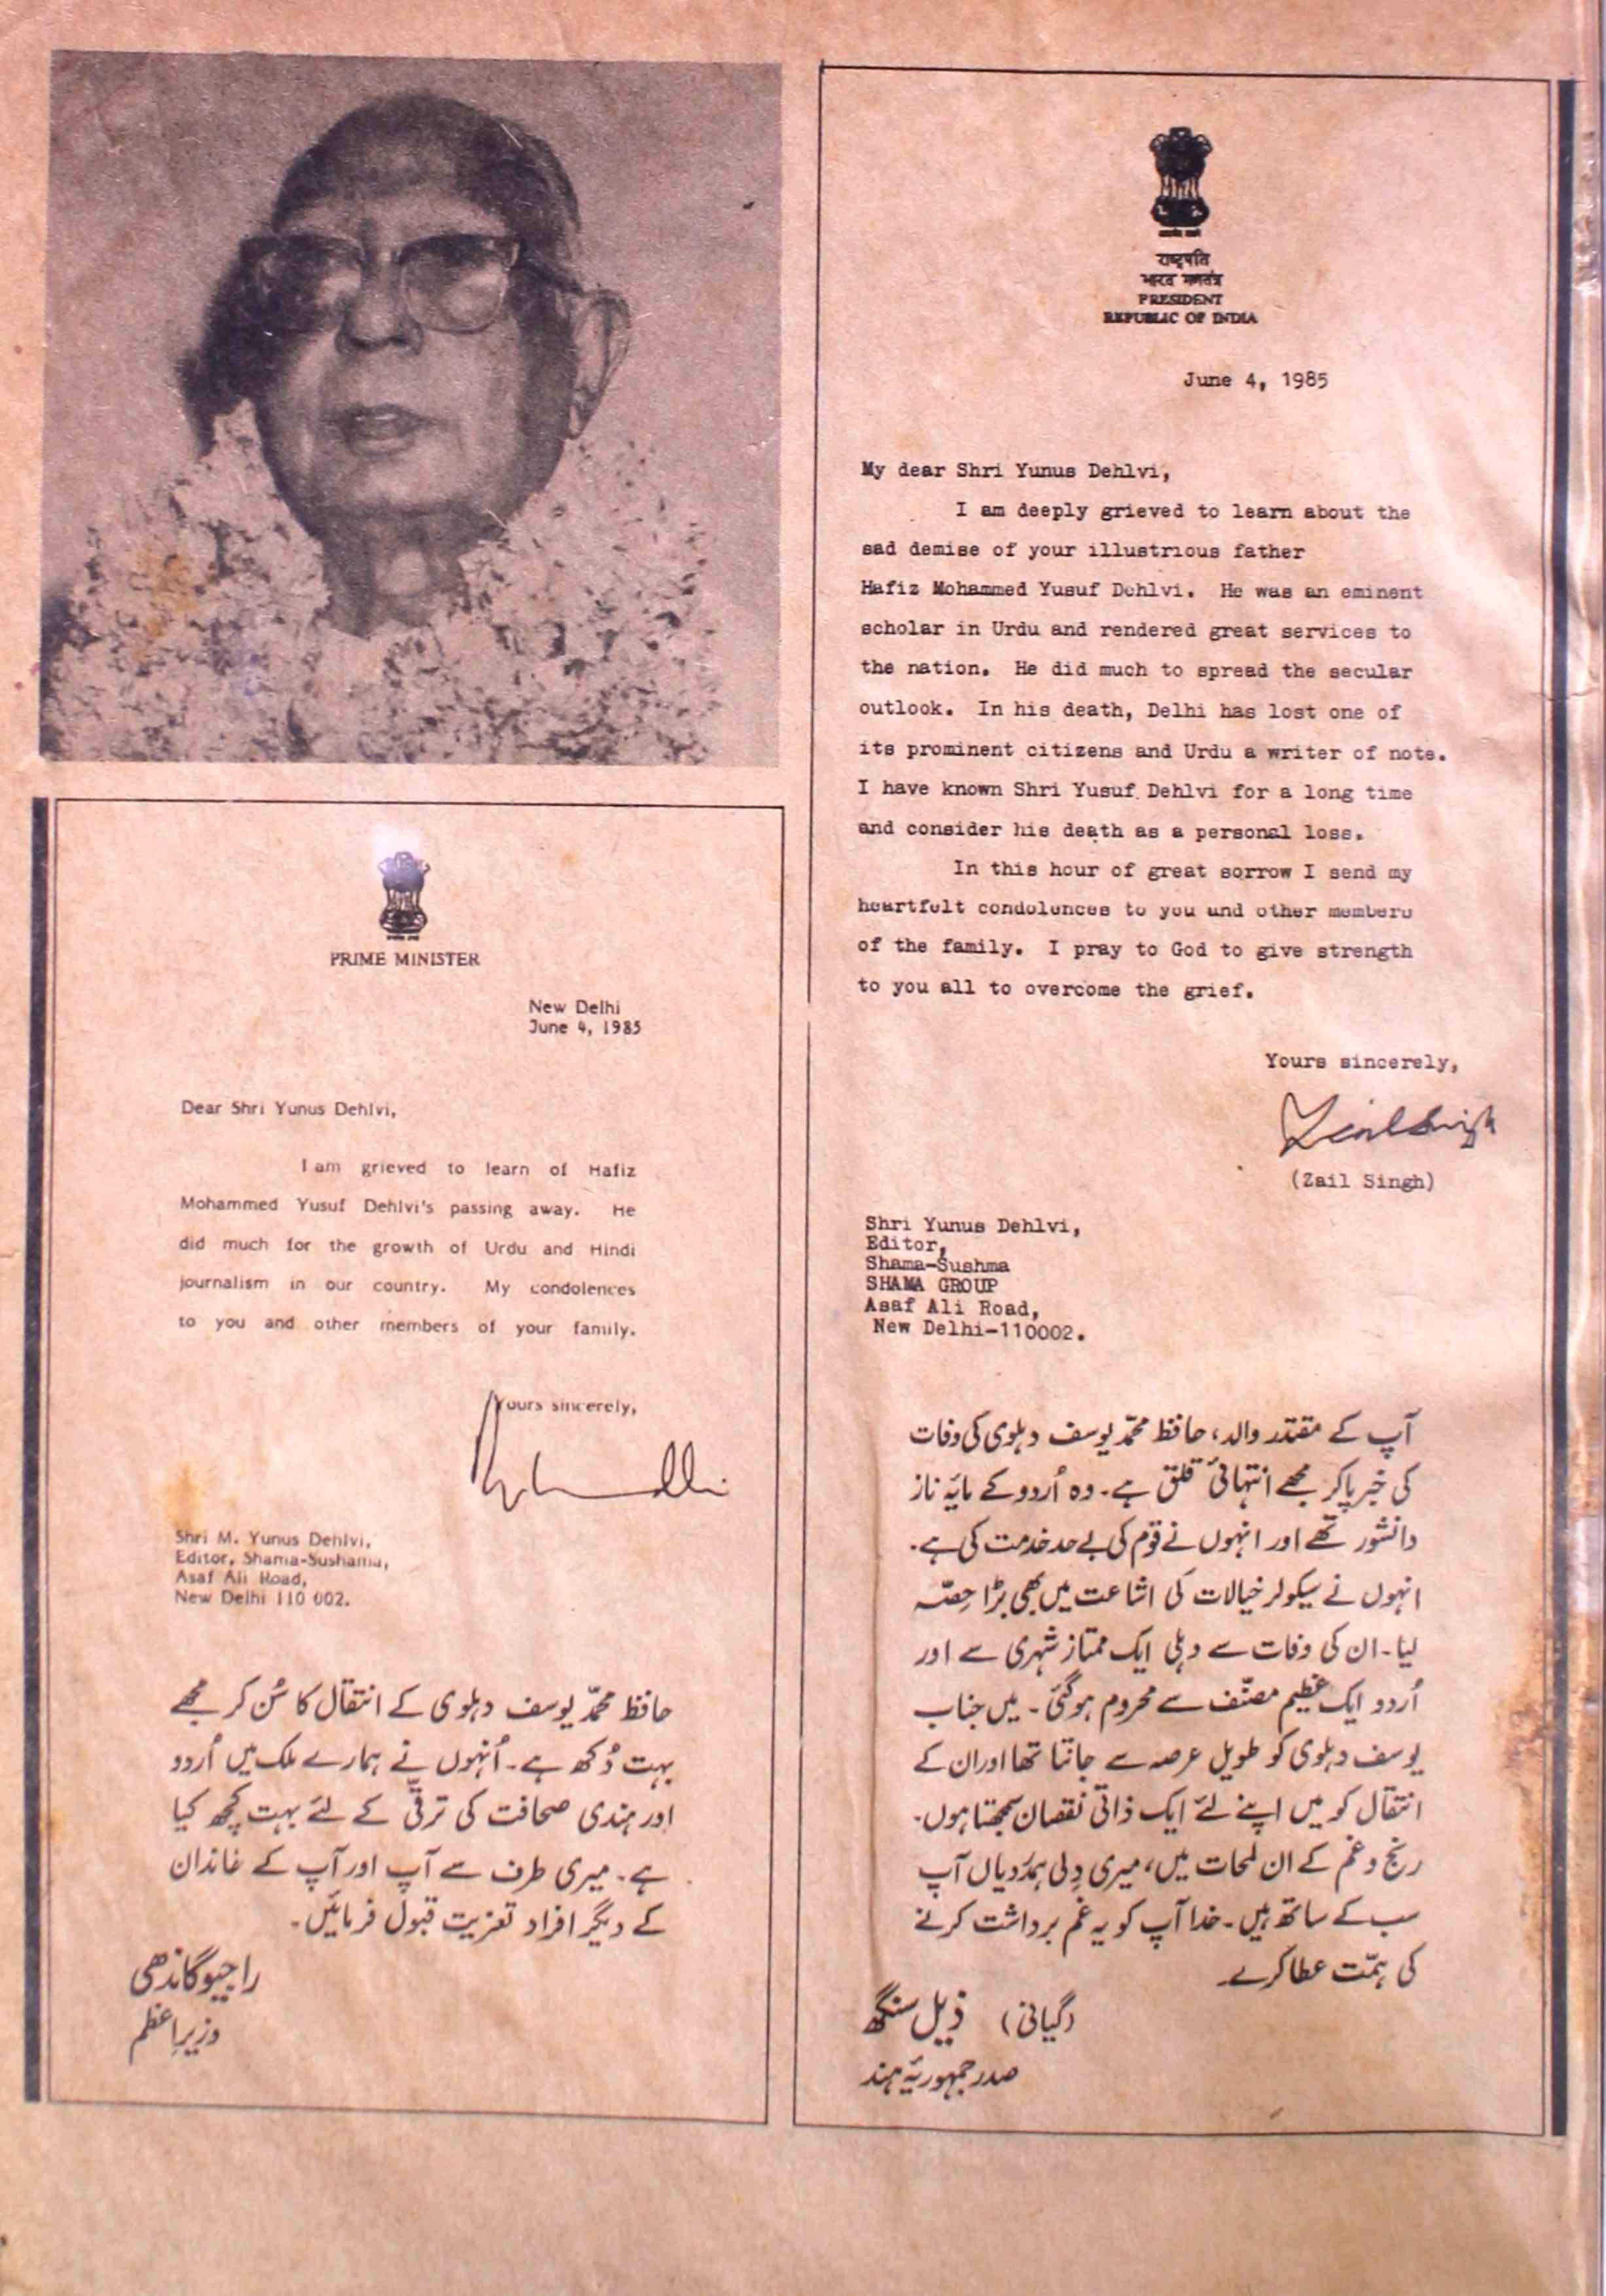 PRIME MINISTER
New Delhi
June 4, 1985
Dear Shri Yunus Dehlvi,
I am grieved to learn of Hafiz
Mohammed Yusuf Dehlvi's passing away. He
did much for the growth of Urdu and Hindi
journalism in our country. My condolences
to you and other members of your family.
Yours sincerely,
Shri M. Yunus Dehlvi,
Editor, Shama-Sushama,
Asaf Ali Road,
New Delhi 110 002.
حافظ محمّد یوسف دہلوی کے انتقال کا سُن کر مجھے
بہت دُکھ ہے۔ اُنہوں نے ہمارے ملک میں اُردو
اور ہندی صحافت کی ترقّی کے لئے بہت کچھ کیا
ہے۔ میری طرف سے آپ اور آپ کے خاندان
کے دیگر افراد تعزیت قبول فرمائیں۔
راجیو گاندھی
وزیرِ اعظم
राष्ट्रपति
भारत गणतंत्र
PRESIDENT
REPUBLIC OF INDIA
June 4, 1985
My dear Shri Yunus Dehlvi,
I am deeply grieved to learn about the
sad demise of your illustrious father
Hafiz Mohammed Yusuf Dehlvi. He was an eminent
scholar in Urdu and rendered great services to
the nation. He did much to spread the secular
outlook. In his death, Delhi has lost one of
its prominent citizens and Urdu a writer of note.
I have known Shri Yusuf Dehlvi for a long time
and consider his death as a personal loss.
In this hour of great sorrow I send my
heartfelt condolences to you and other members
of the family. I pray to God to give strength
to you all to overcome the grief.
Yours sincerely,
Zail Singh
(Zail Singh)
Shri Yunus Dehlvi,
Editor,
Shama-Sushma
SHAMA GROUP
Asaf Ali Road,
New Delhi-110002.
آپ کے مقتدر والد، حافظ محمّد یوسف دہلوی کی وفات
کی خبر پاکر مجھے انتہائی قلق ہے۔ وہ اُردو کے مایۂ ناز
دانشور تھے اور انہوں نے قوم کی بے حد خدمت کی ہے۔
انہوں نے سیکولر خیالات کی اشاعت میں بھی بڑا حِصّہ
لیا۔ ان کی وفات سے دہلی ایک ممتاز شہری سے اور
اُردو ایک عظیم مصنّف سے محروم ہوگئی۔ میں جناب
یوسف دہلوی کو طویل عرصہ سے جانتا تھا اور ان کے
انتقال کو میں اپنے لئے ایک ذاتی نقصان سمجھتا ہوں۔
رنج و غم کے ان لمحات میں، میری دِلی ہمدردیاں آپ
سب کے ساتھ ہیں۔ خدا آپ کو یہ غم برداشت کرنے
کی ہمّت عطا کرے۔
(گیانی) ذیل سنگھ
صدر جمہوریۂ ہند